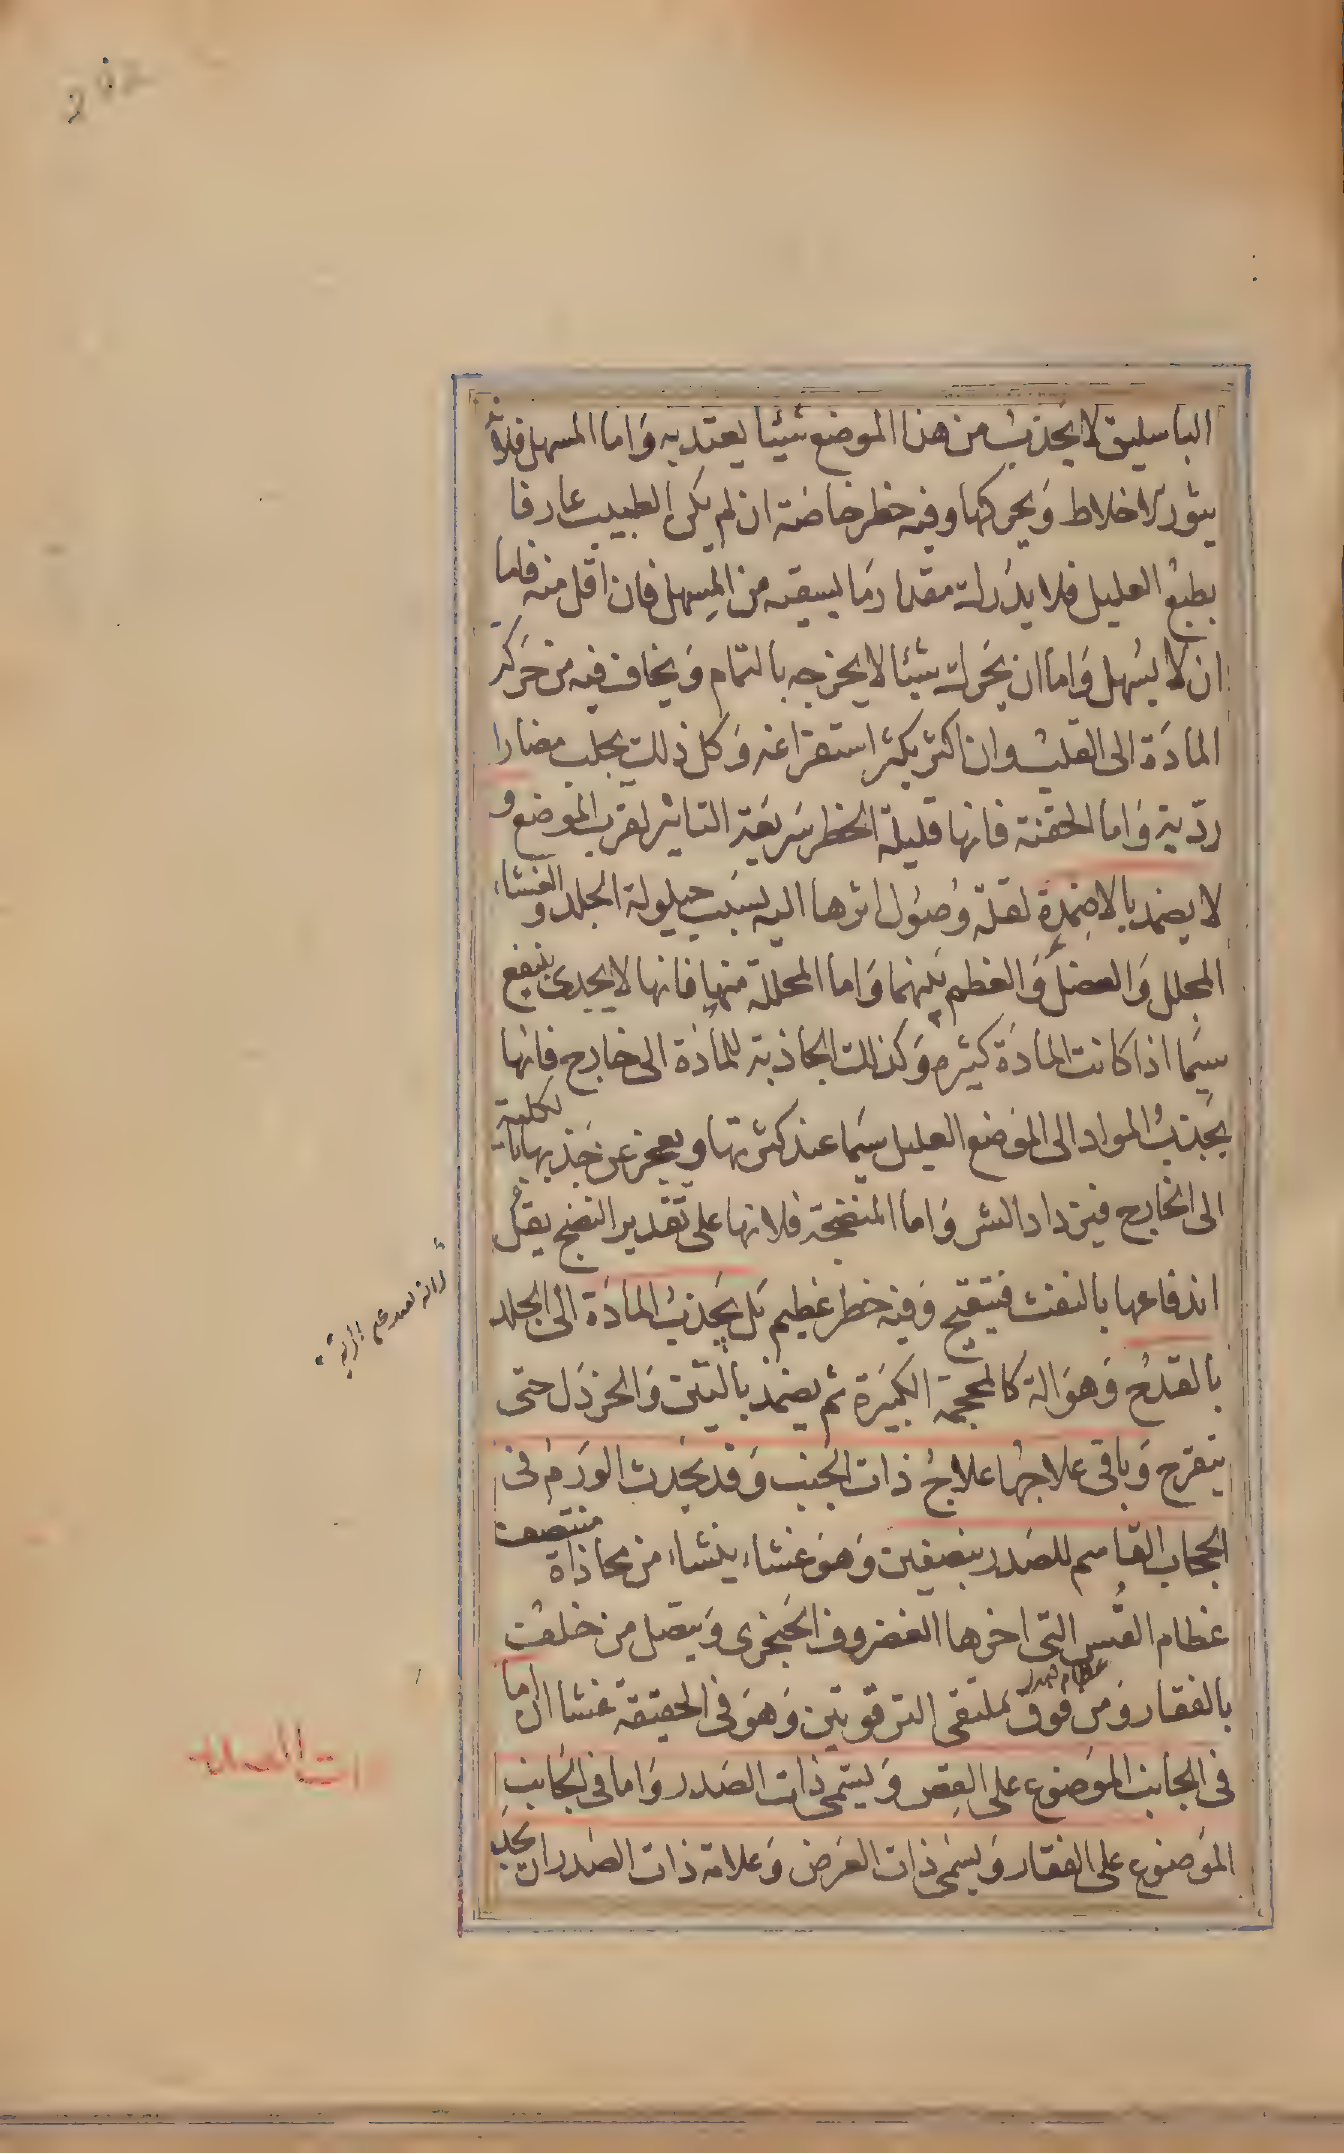 الباسليق لا يجذب من هذا الموضع شيئا يعتد به واما المسهل فلانه
يثور الاخلاط ويحركها وفيه خطر خاصة ان لم يكن الطبيب عارفا
بطبع العليل فلا يدرك مقدار ما يسقيه من المسهل فان اقل منه فاما
ان لا يسهل واما ان يحرك شيئا لا يخرجه بالتمام ويخاف فيه من حركة
المادة الى القلب وان اكثر يكثر استفراغه وكل ذلك يجلب مضارا
ردية واما الحقنة فانها قليلة الخطر سريعة التاثير لقرب الموضع و
لا يضمد بالاضمدة لقلة وصول اثرها اليه بسبب حيلولة الجلد والغشاء
المجلل والعضل والعظم بينهما واما المحللة منها فانها لا يجدى بنفع
سيما اذا كانت المادة كثيرة وكذلك الجاذبة للمادة الى خارج فانها
يجذب المواد الى الموضع العليل سيما عند كثرتها ويعجز عن جذبها بالكلية
الى الخارج فيزداد الشر واما المنضجة فلانها على تقدير النضج يقل
اندفاعها بالنفث فيتقيح وفيه خطر عظيم بل يجذب المادة الى الجلد
بالقدح وهو الة كالمحجمة الكبيرة ثم يضمد بالتين والخردل حتى
يتقرح وباقى علاجها علاج ذات الجنب وقد يحدث الورم فى
الحجاب القاسم للصدر بنصفين وهو غشاء ينشاء من محاذاة منتصف
عظام القس التى اخرها الغضروف الحنجرى ويتصل من خلف
بالفقار ومن فوق بملتقى الترقوتين وهو فى الحقيقة غشاان اما
عظام صدر
فى الجانب الموضوع على القص ويسمى ذات الصدر واما فى الجانب
الموضوع على الفقار ويسمى ذات العرض وعلامة ذات الصدر ان يجد
ذات الصدر